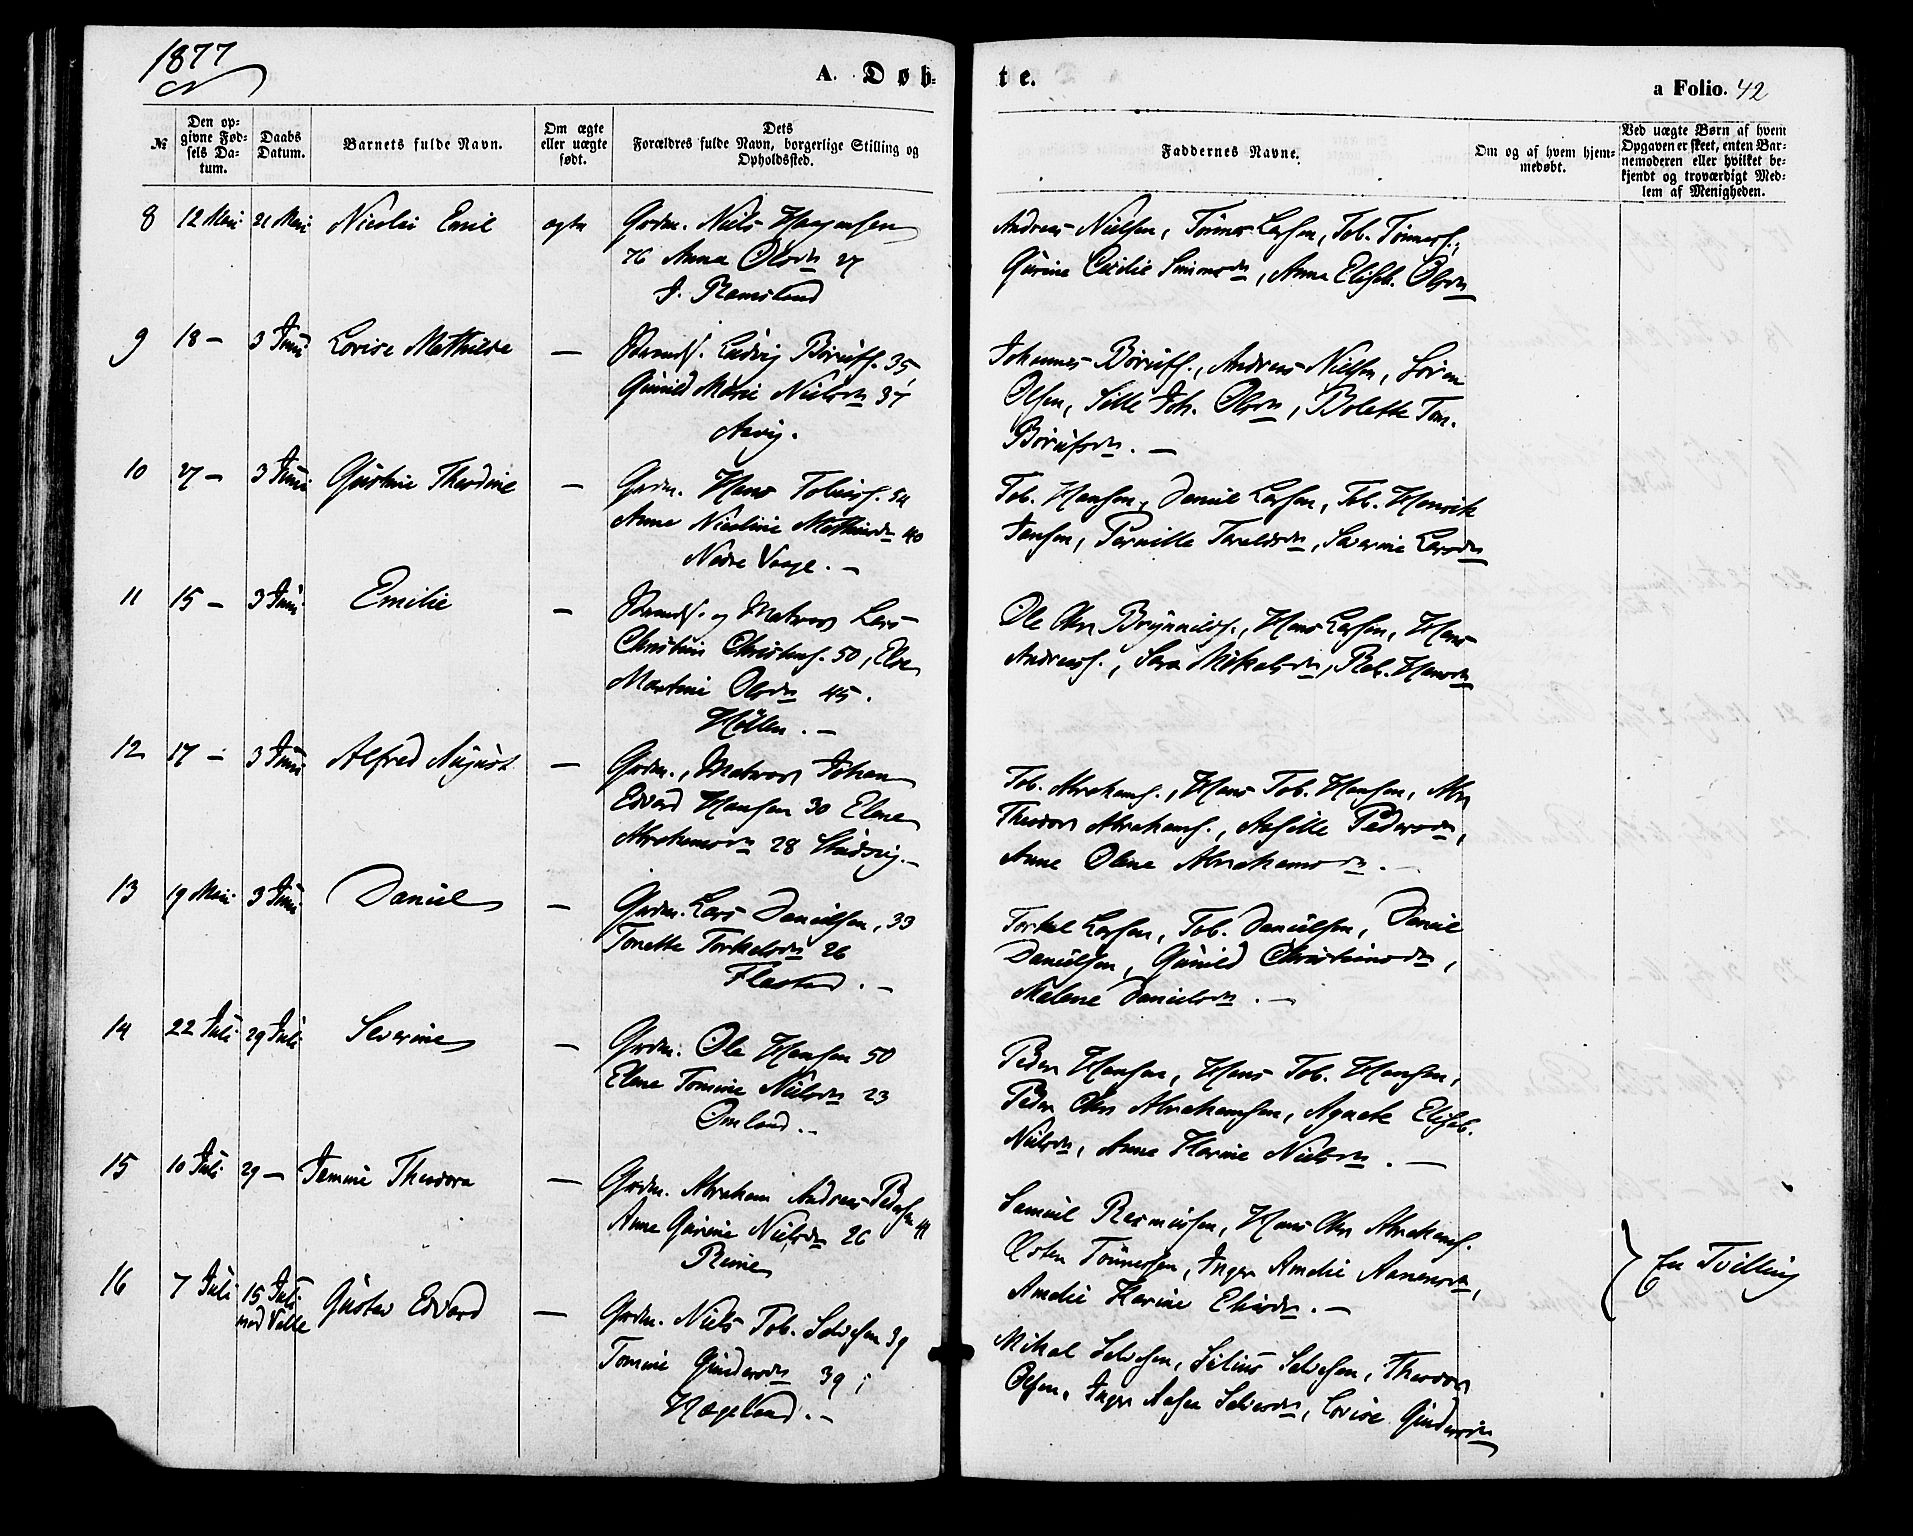 1877
A. Døb-
te.
a Folio. 42
№
Den op-
givne Fød-
sels Da-
tum.
Daabs
Datum.
Barnets fulde Navn.
Om ægte
eller uægte
født.
Dets
Forældres fulde Navn, borgerlige Stilling og
Opholdssted.
Faddernes Navne.
Om og af hvem hjem-
medøbt.
Ved uægte Børn af hvem
Opgaven er skeet, enten Bar-
nemoderen eller hvilket be-
kjendt og troværdigt Med-
lem af Menigheden.
8 12 Mai 21 Mai Nicolai Emil ægte
Grdm. Niels Haagensen
76 Anna Olsdn 27
J. Ramsland
Andreas Nielsen, Tønnes Larsen, Tob. Tønness.,
Gurine Cecilie Simonsdn, Anna Elisab. Olsdn
9 18 — 3 Juni Lovise Mathilde —
Ludvig Børufs. 35,
Gunild Marie Nielsdn 37
Aavig.
Johannes Børufs., Andreas Nielsen, Søren
Olsen, Sille Joh. Olsdn, Bolette Tom.
Børufsdn. —
10 27 — 3 Juni Gustine Theodine —
Grdm. Hans Tobiass. 54
Anne Nicoline Mathiasdn 40
Nedre Vaage. —
Tob. Hansen, Daniel Larsen, Tob. Henrik
Jensen, Pernille Tareldsdn, Severine Larsdn
11 15 — 3 Juni Emilie —
og Matros Lars
Christian Christens. 50, Else
Martine Olsdn 45.
Høllen. —
Ole Chr Brynnilds., Hans Larsen, Hans
Andreass., Sara Mikalsdn, Reb. Hansdn
12 17 — 3 Juni Alfred August —
Grdm., Matros Johan
Edvard Hansen 30 Elene
Abrahamsdn 28 Studvig. —
Tob. Abrahams., Hans Tob. Hansen, Abr
Theodor Abrahams., Aasille Pedersdn,
Anne Olene Abrahamsdn. —
13 19 Mai 3 Juni Daniel —
Grdm. Lars Danielsen, 33
Tonette Torkelsdn 26
Flestad. —
Torkel Larsen, Tob. Danielsen, Daniel
Danielsen, Gunild Christiansdn,
Malene Danielsdn. —
14 22 Juli 29 Juli Severine —
Grdm. Ole Hansen 50
Elene Tomine Nielsdn 23
Omland. —
Peder Hansen, Hans Tob. Hansen,
Peder Chr Abrahamsen, Agnete Elisab.
Nielsdn, Anne Karine Nielsdn. —
15 10 Juli 29 — Jemine Theodora —
Grdm. Abraham Andreas Pedersen 41
Anne Gurine Nielsdn 26
Reme
Samuel Rasmussen, Hans Chr Abrahams.
Osten Tønnessen, Inger Amalie Aanensdn,
Amalie Karine Eliasdn. —
16 7 Juli 15 Juli
med Valle
Gustav Edvard —
Grdm. Niels Tob. Salvesen 39
Tomine Gundersdn 39;
Hageland. —
Mikal Salvesen, Silius Salvesen, Theodor
Olsen, Inger Aasen Salvesdn, Lovise Gundersdn
En Tvilling